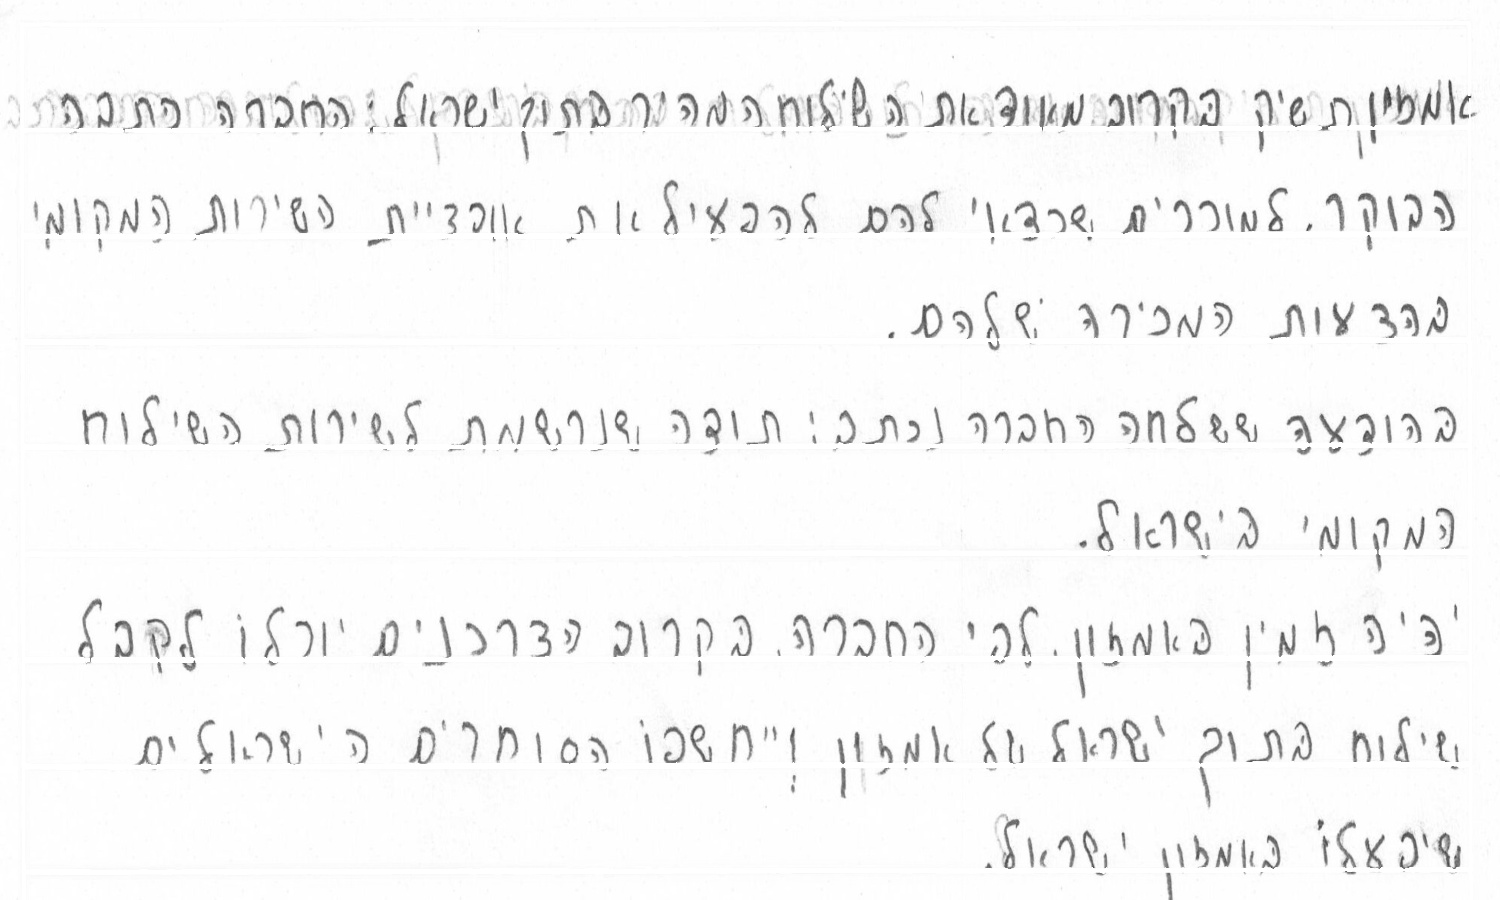 אמזון תשיק בקרוב מאוד את השילוח המהיר בתוך ישראל: החברה כתבה
הבוקר. למוכרים שכדאי להם להפעיל את אופציית השירות המקומי
בהצעות המכירה שלהם.
בהודעה ששלחה החברה נכתב: תודה שנרשמת לשירות השילוח
המקומי בישראל.
יהיה זמין באמזון. לפי החברה. בקרוב הצרכנים יוכלו לקבל
שילוח בתוך ישראל של אמזון וייחשפו הסוחרים הישראלים
שיפעלו באמזון ישראל.